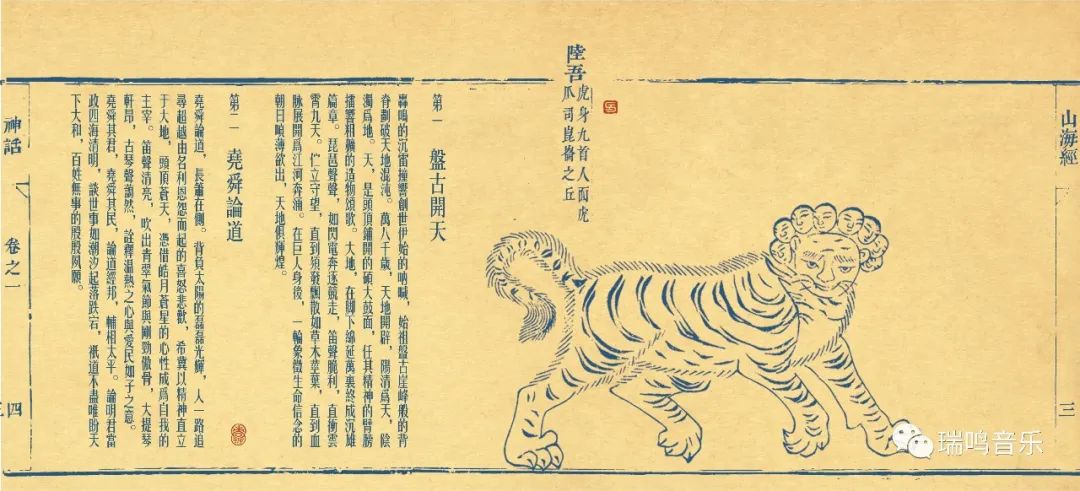 山海經
三
陸吾
虎身九首人面虎
爪司崑崙之丘
第一 盤古開天
轟鳴的沉雷撞響創世伊始的吶喊，始祖盤古崖峰般的背
脊劃破天地混沌。萬八千歲，天地開辟，陽清爲天，陰
濁爲地。天，是頭頂鋪開的碩大鼓面，任其精神的臂膀
擂響粗獷的造物頌歌。大地，在脚下綿延萬裏終成沉雄
篇章。琵琶聲聲，如閃電奔逐競走，笛聲脆利，直衝雲
霄九天。伫立守望，直到須發飄散如草木莖葉，直到血
脉展開爲江河奔涌。在巨人身後，一輪象徵生命信念的
朝日噴薄欲出，天地俱輝煌。
第二 堯舜論道
堯舜論道，長簫在側。背負太陽的磊磊光輝，人一路追
尋超越由名利恩怨而起的喜怒悲歡，希冀以精神直立
于大地，頭頂蒼天，憑借皓月蒼星的心性成爲自我的
主宰。笛聲清亮，吹出青翠氣節與剛勁傲骨，大提琴
軒昂，古琴聲藹然，詮釋温熱之心與愛民如子之意。
堯舜其君，堯舜其民，論道經邦，輔相太平。論明君當
政四海清明，談世事如潮汐起落跌宕，祇道不盡唯盼天
下大和，百姓無事的殷殷夙願。
神話
卷之一
四
瑞鸣音乐